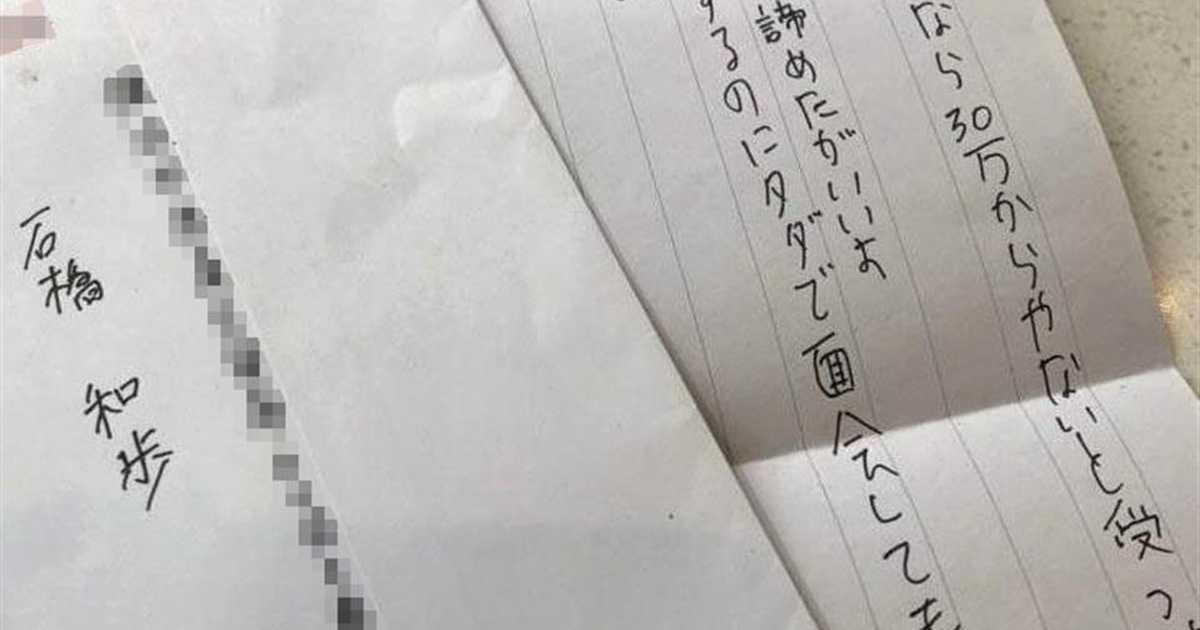 なら30万からやないと受つ
諦めたがいいよ
するのにタダで面会しても
石橋 和歩